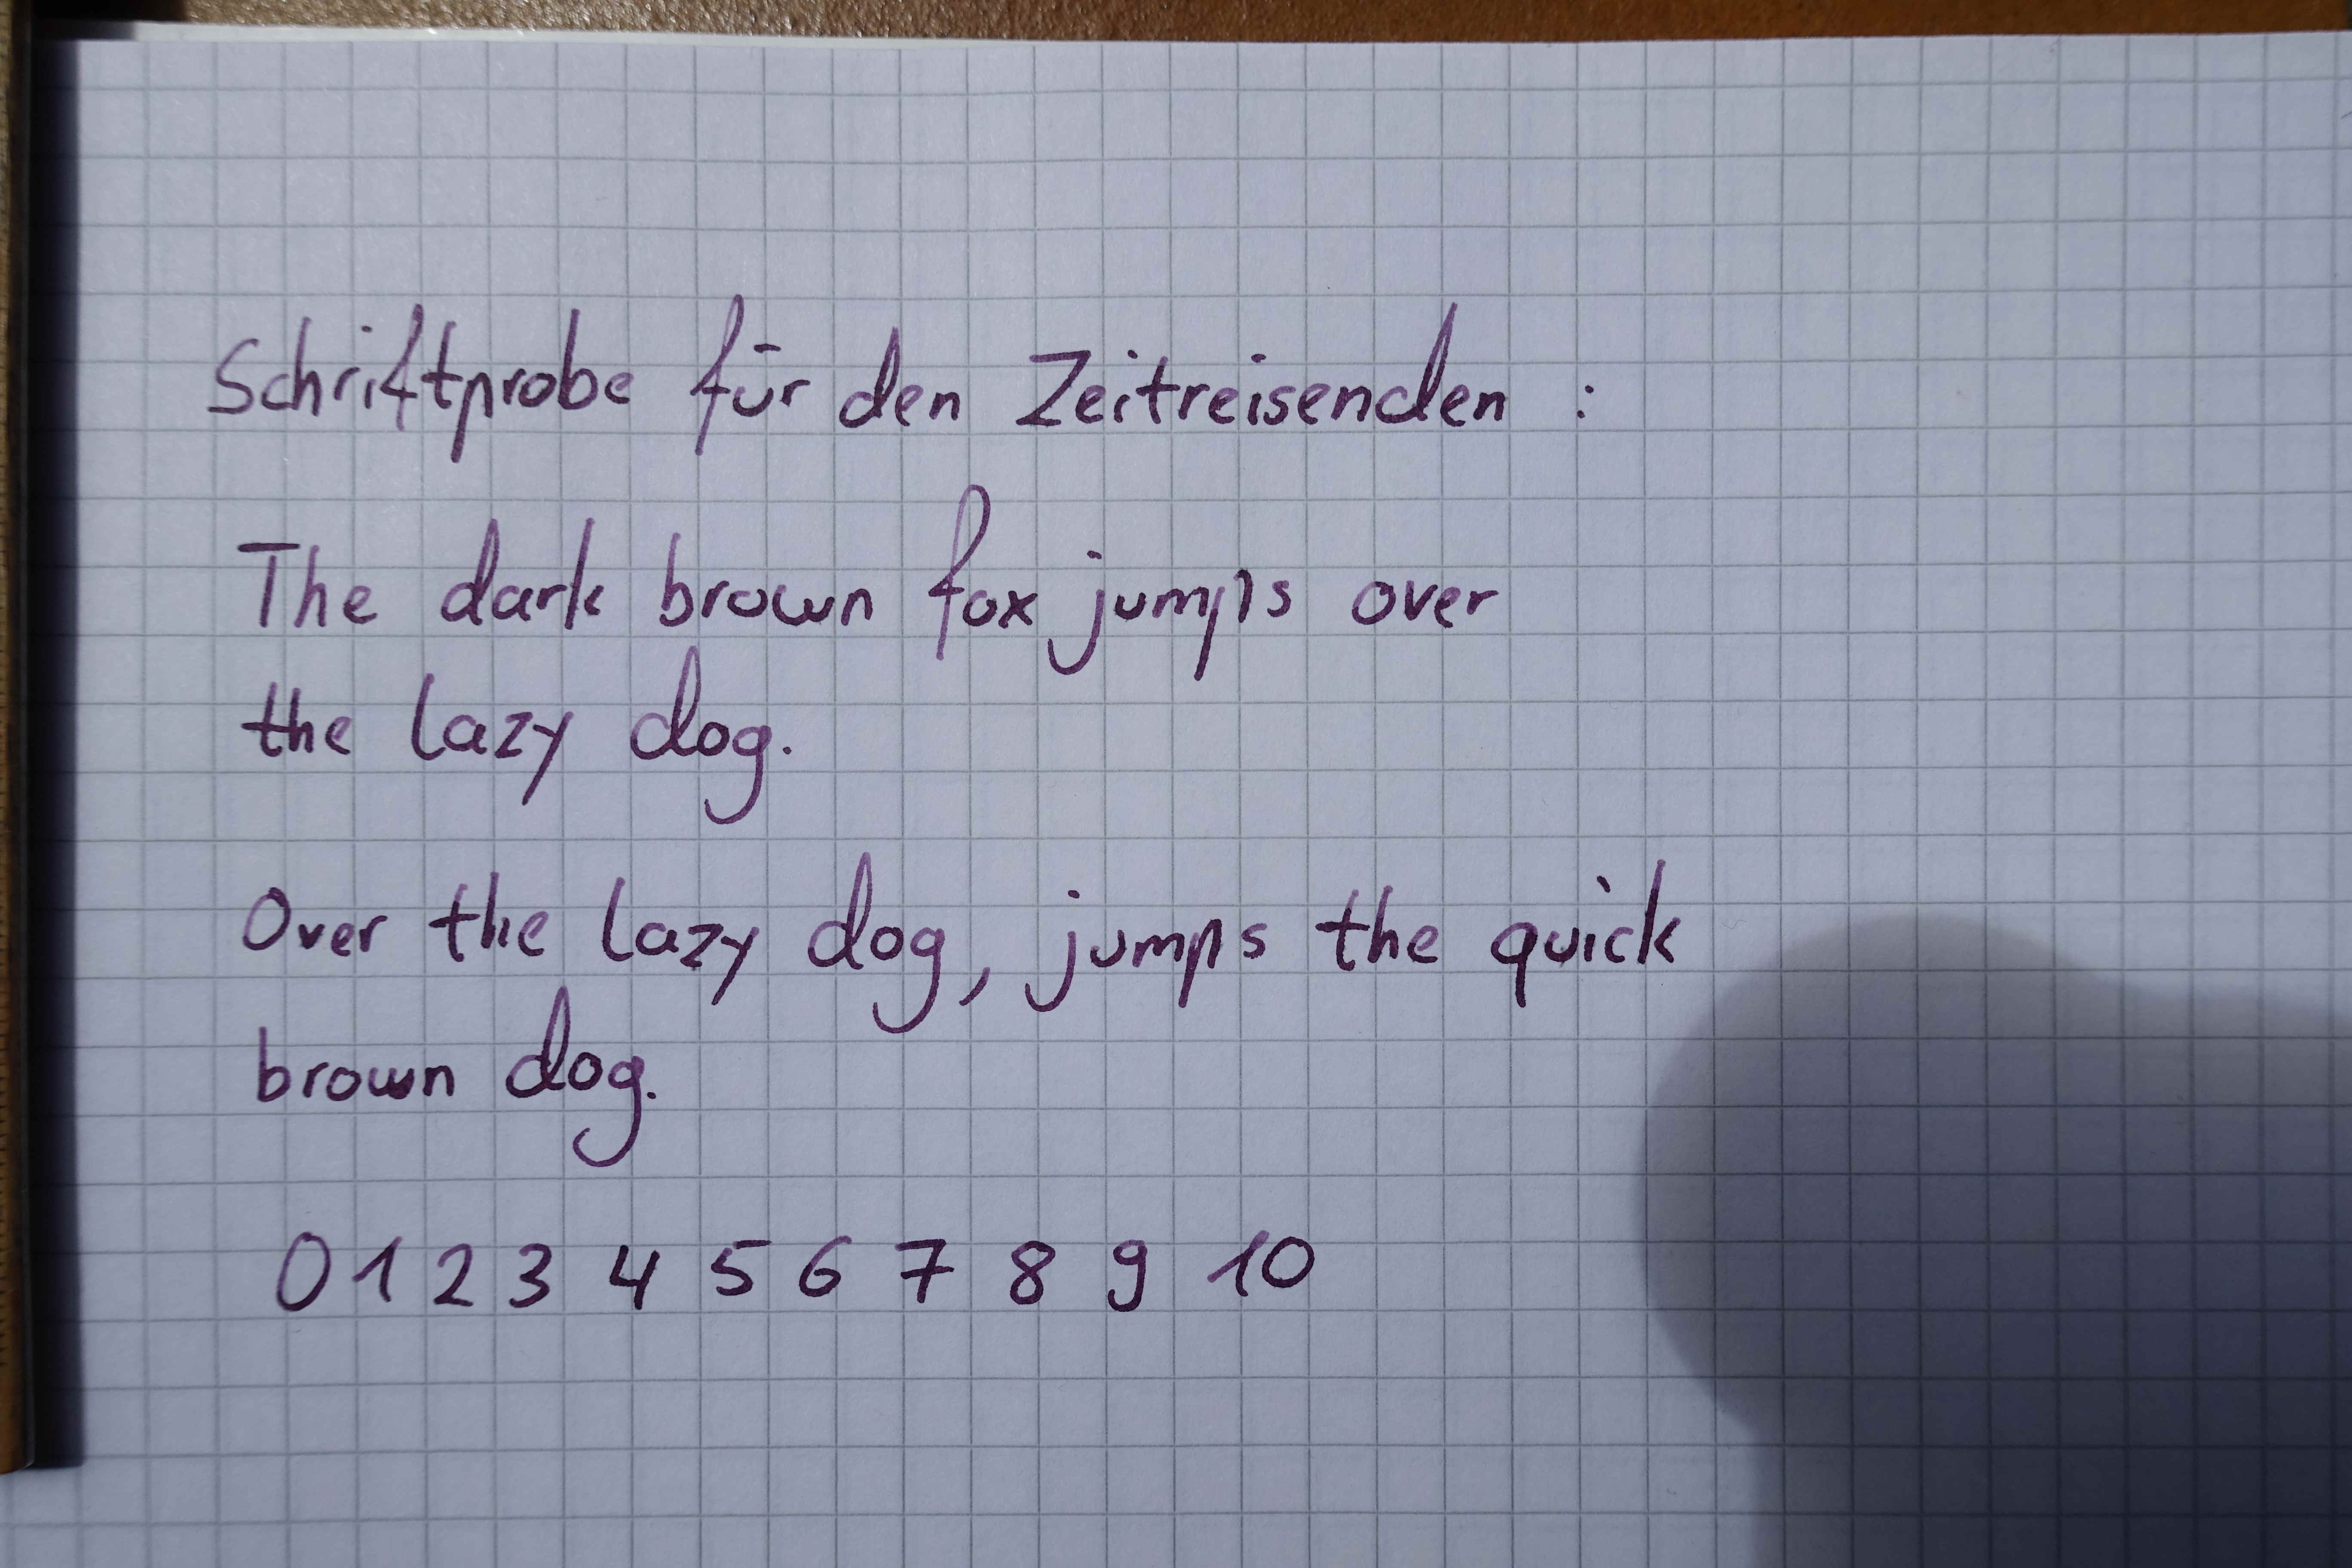 Schriftprobe für den Zeitreisenden :
The dark brown fox jumps over
the lazy dog.
Over the lazy dog, jumps the quick
brown dog.
0 1 2 3 4 5 6 7 8 9 10